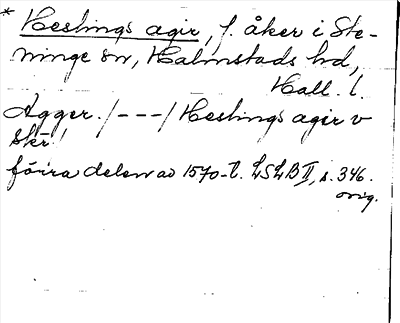 * Heslings agir, f. åker i Ste-
ninge sn, Halmstads hd,
Hall. l.
Agger. /---/ Heslings agir v
skr!
förra delen av 1570-t. LSLB II, s. 346.
orig.